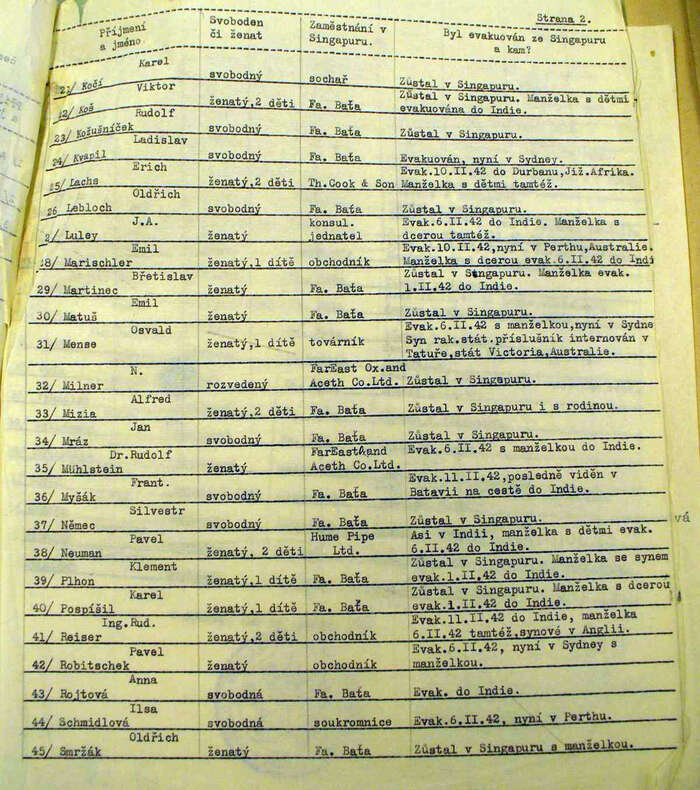 Strana 2.
Příjmení a jméno Svoboden či ženat Zaměstnání v Singapuru. Byl evakuován ze Singapuru a kam?
Karel
21/ Kočí svobodný sochař Zůstal v Singapuru.
Viktor Zůstal v Singapuru. Manželka s dětmi
22/ Koš ženatý,2 děti Fa. Baťa evakuována do Indie.
Rudolf
23/ Kožušníček svobodný Fa. Baťa Zůstal v Singapuru.
Ladislav
24/ Kvapil svobodný Fa. Baťa Evakuován, nyní v Sydney.
Erich Evak.10.II.42 do Durbanu,Již.Afrika.
25/ Lachs ženatý,2 děti Th.Cook & Son Manželka s dětmi tamtéž.
Oldřich
26 Lebloch svobodný Fa. Baťa Zůstal v Singapuru.
J.A. konsul. Evak.6.II.42 do Indie. Manželka s
2/ Luley ženatý jednatel dcerou tamtéž.
Emil Evak.10.II.42,nyní v Perthu,Australie.
28/ Marischler ženatý,1 dítě obchodník Manželka s dcerou evak.6.II.42 do Indi
Břetislav Zůstal v Singapuru. Manželka evak.
29/ Martinec ženatý Fa. Baťa 1.II.42 do Indie.
Emil
30/ Matuš ženatý Fa. Baťa Zůstal v Singapuru.
Osvald Evak.6.II.42 s manželkou,nyní v Sydne
31/ Mense ženatý,1 dítě továrník Syn rak.stát.příslušník internován v
Tatuře,stát Victoria,Australie.
N. FarEast Ox.and
32/ Milner rozvedený Aceth Co.Ltd. Zůstal v Singapuru.
Alfred
33/ Mizia ženatý,2 děti Fa. Baťa Zůstal v Singapuru i s rodinou.
Jan
34/ Mráz svobodný Fa. Baťa Zůstal v Singapuru.
Dr.Rudolf FarEast and Evak.6.II.42 s manželkou do Indie.
35/ Mühlstein ženatý Aceth Co.Ltd.
Frant. Evak.11.II.42,posledně viděn v
36/ Myšák svobodný Fa. Baťa Batavii na cestě do Indie.
Silvestr
37/ Němec svobodný Fa. Baťa Zůstal v Singapuru.
Pavel Hume Pipe Asi v Indii, manželka s dětmi evak.
38/ Neuman ženatý, 2 děti Ltd. 6.II.42 do Indie.
Klement Zůstal v Singapuru. Manželka se synem
39/ Plhon ženatý,1 dítě Fa. Baťa evak.1.II.42 do Indie.
Karel Zůstal v Singapuru. Manželka s dcerou
40/ Pospíšil ženatý,1 dítě Fa. Baťa evak.1.II.42 do Indie.
Ing.Rud. Evak.11.II.42 do Indie, manželka
41/ Reiser ženatý,2 děti obchodník 6.II.42 tamtéž,synové v Anglii.
Pavel Evak.6.II.42, nyní v Sydney s
42/ Robitschek ženatý obchodník manželkou.
Anna
43/ Rojtová svobodná Fa. Baťa Evak. do Indie.
Ilsa
44/ Schmidlová svobodná soukromnice Evak.6.II.42, nyní v Perthu.
Oldřich
45/ Smržák ženatý Fa. Baťa Zůstal v Singapuru s manželkou.
vá